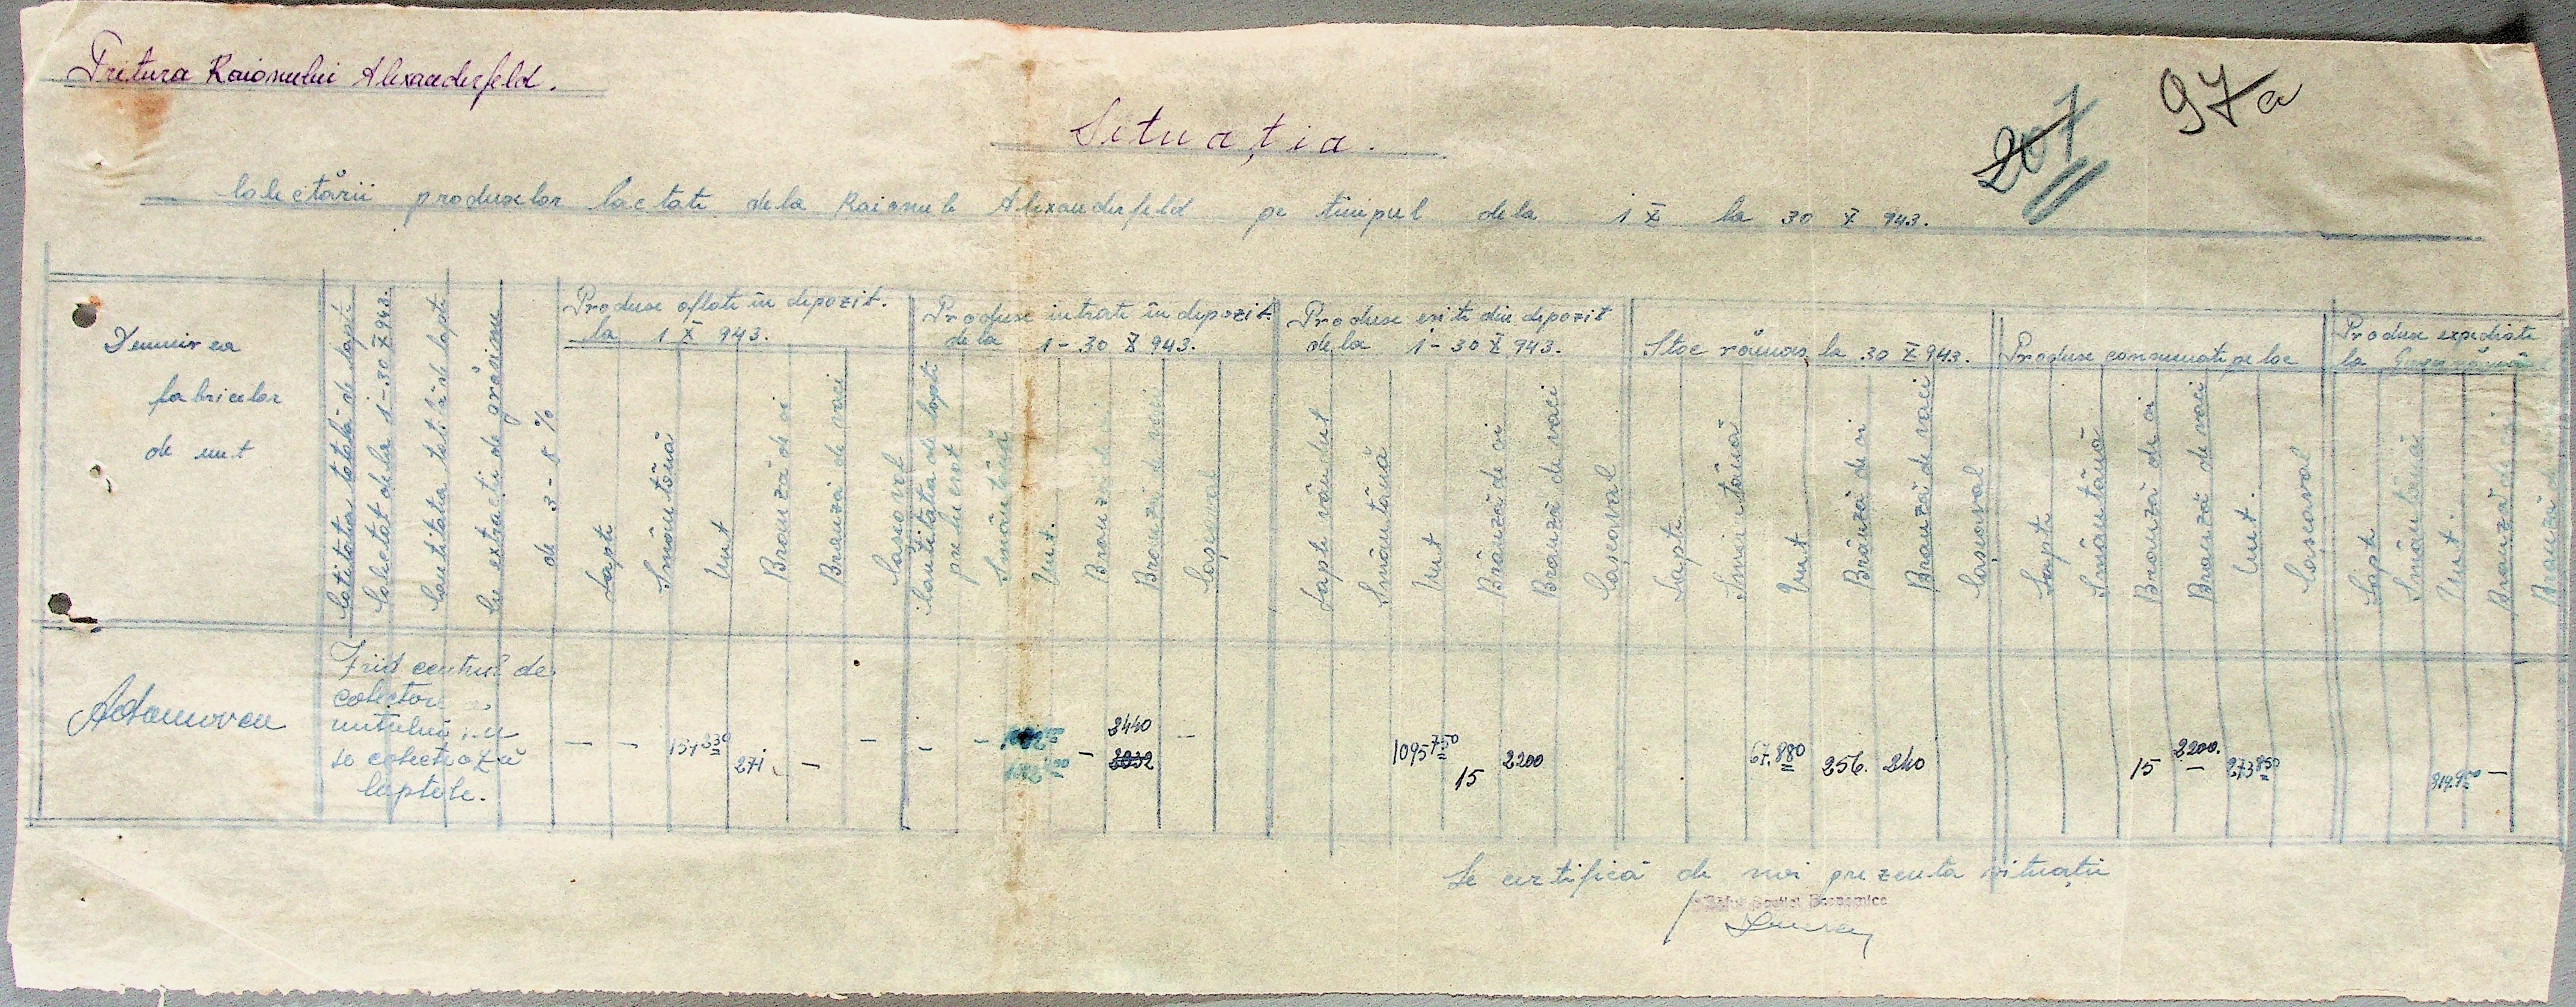 Pretura Raionului Alexanderfeld.
97a
207
Situația.
Colectării produselor lactate dela Raionul Alexanderfeld pe timpul dela 1 X la 30 X 943.
Denumirea
fabricelor
de unt
Cantitatea totală de lapte
Colectat dela 1-30 X 943.
Cantitatea totală de lapte
cu extracte de grăsime
de 3-5 %
Produse aflate în depozit.
la 1 X 943.
Lapte
Smântână
Unt
Brânză de oi
Brânză de vaci
Cașcaval
Produse intrate în depozit
dela 1-30 X 943.
Cantitatea de lapte
prelucrat
Smântână
Unt.
Brânză de oi
Brânză de vaci
Cașcaval
Produse esite din depozit
dela 1-30 X 943.
Lapte vândut
Smântână
Unt
Brânză de oi
Brânză de vaci
Cașcaval
Stoc rămas la 30 X 943.
Lapte
Smântână
Unt
Brânză de oi
Brânză de vaci
Cașcaval
Produse consumate pe loc
Lapte
Smântână
Brânză de oi
Brânză de vaci
Unt.
Cașcaval
Produse expediate
la
Lapte
Smântână
Unt.
Brânză de oi.
Brânză de
Adamovca
Fiid centrul de
colectare
untului nu
se colectează
laptele.
— — 151 330 271 — — — — — 2440 —
2032
1095 750 15 2200
67.880 256. 240
15 2200. 273 850
819.950 —
Se certifică de noi prezenta situație
Șeful Secției Economice